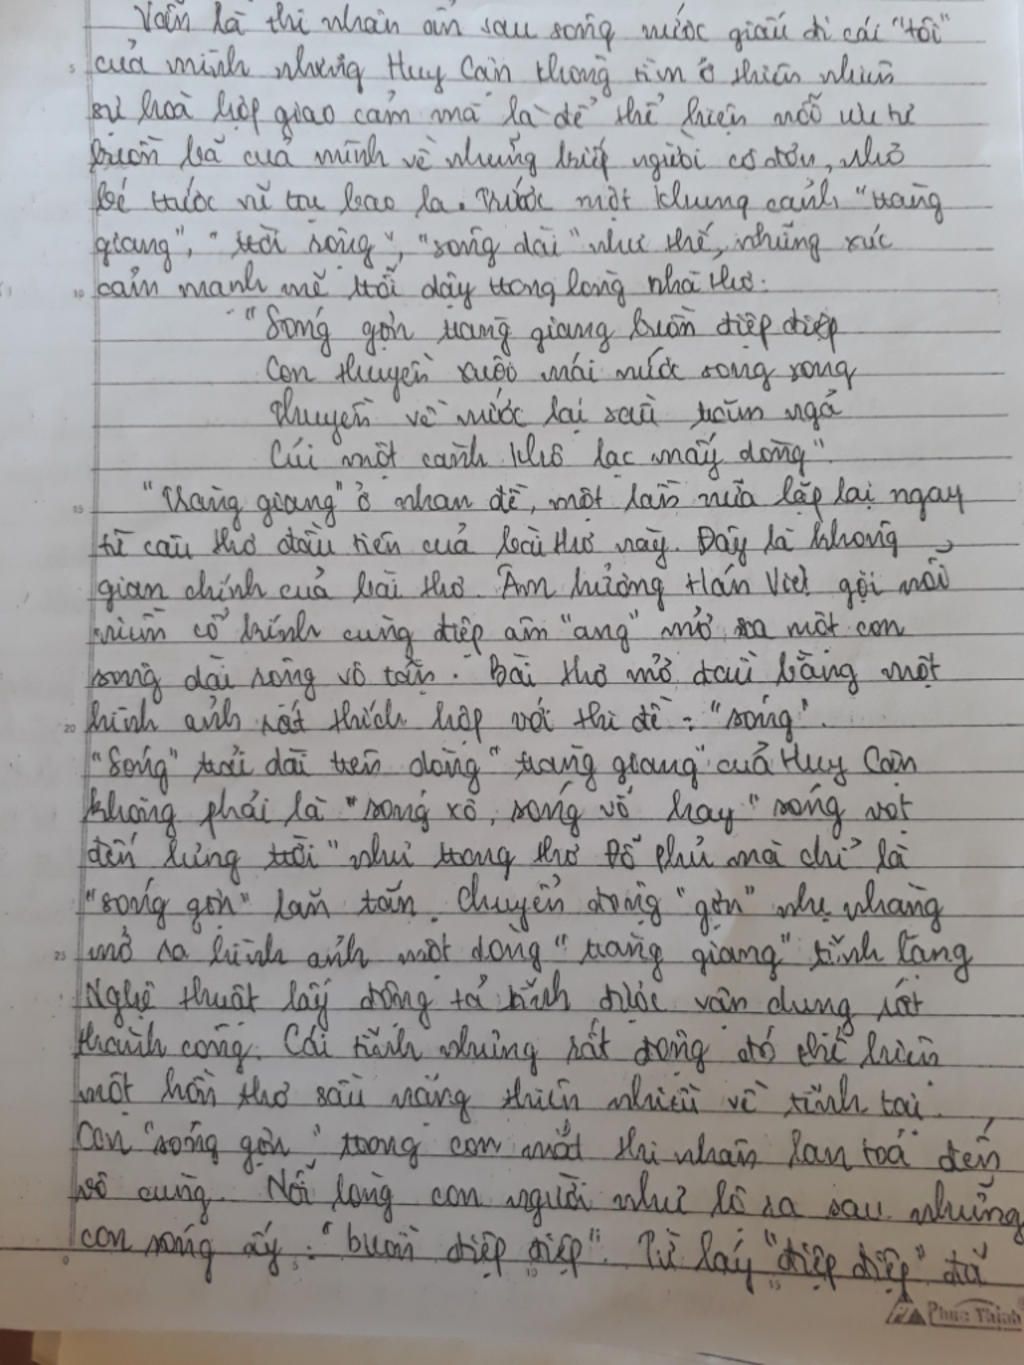 Vẫn là thi nhân ẩn sau sông nước giấu đi cái "tôi"
5 của mình nhưng Huy Cận không tìm ở thiên nhiên
sự hoà hợp giao cảm mà là để thể hiện nỗi ưu tư
buồn bã của mình về những kiếp người cô đơn, nhỏ
bé trước vũ trụ bao la. Trước một khung cảnh "tràng
giang", "trời rộng", "sông dài" như thế, những xúc
10 cảm mạnh mẽ trỗi dậy trong lòng nhà thơ:
"Sóng gợn tràng giang buồn điệp điệp
Con thuyền xuôi mái nước song song
Thuyền về nước lại sầu trăm ngả
Củi một cành khô lạc mấy dòng"
15 "Tràng giang" ở nhan đề, một lần nữa lặp lại ngay
từ câu thơ đầu tiên của bài thơ này. Đây là không
gian chính của bài thơ. Âm hưởng Hán Việt gợi nỗi
niềm cổ kính cùng điệp âm "ang" mở ra một con
sông dài rộng vô tận. Bài thơ mở đầu bằng một
20 hình ảnh rất thích hợp với thi đề: "sóng".
"Sóng" trải dài trên dòng "tràng giang" của Huy Cận
không phải là "sóng xô, sóng vỗ hay "sóng vọt
đến lưng trời" như trong thơ Đỗ Phủ mà chỉ là
"sóng gợn" lăn tăn. Chuyển động "gợn" nhẹ nhàng
25 mở ra hình ảnh một dòng "tràng giang" tĩnh lặng
Nghệ thuật lấy động tả tĩnh được vận dụng rất
thành công. Cái tĩnh nhưng rất động đó thể hiện
một hồn thơ sầu nặng thiên nhiều về tĩnh tại.
Con "sóng gợn" trong con mắt thi nhân lan toả đến
vô cùng. Nỗi lòng con người như lộ ra sau những
con sóng ấy: "buồn điệp điệp". Từ láy "điệp điệp" đã
0 5 10 15
Phúc Thịnh